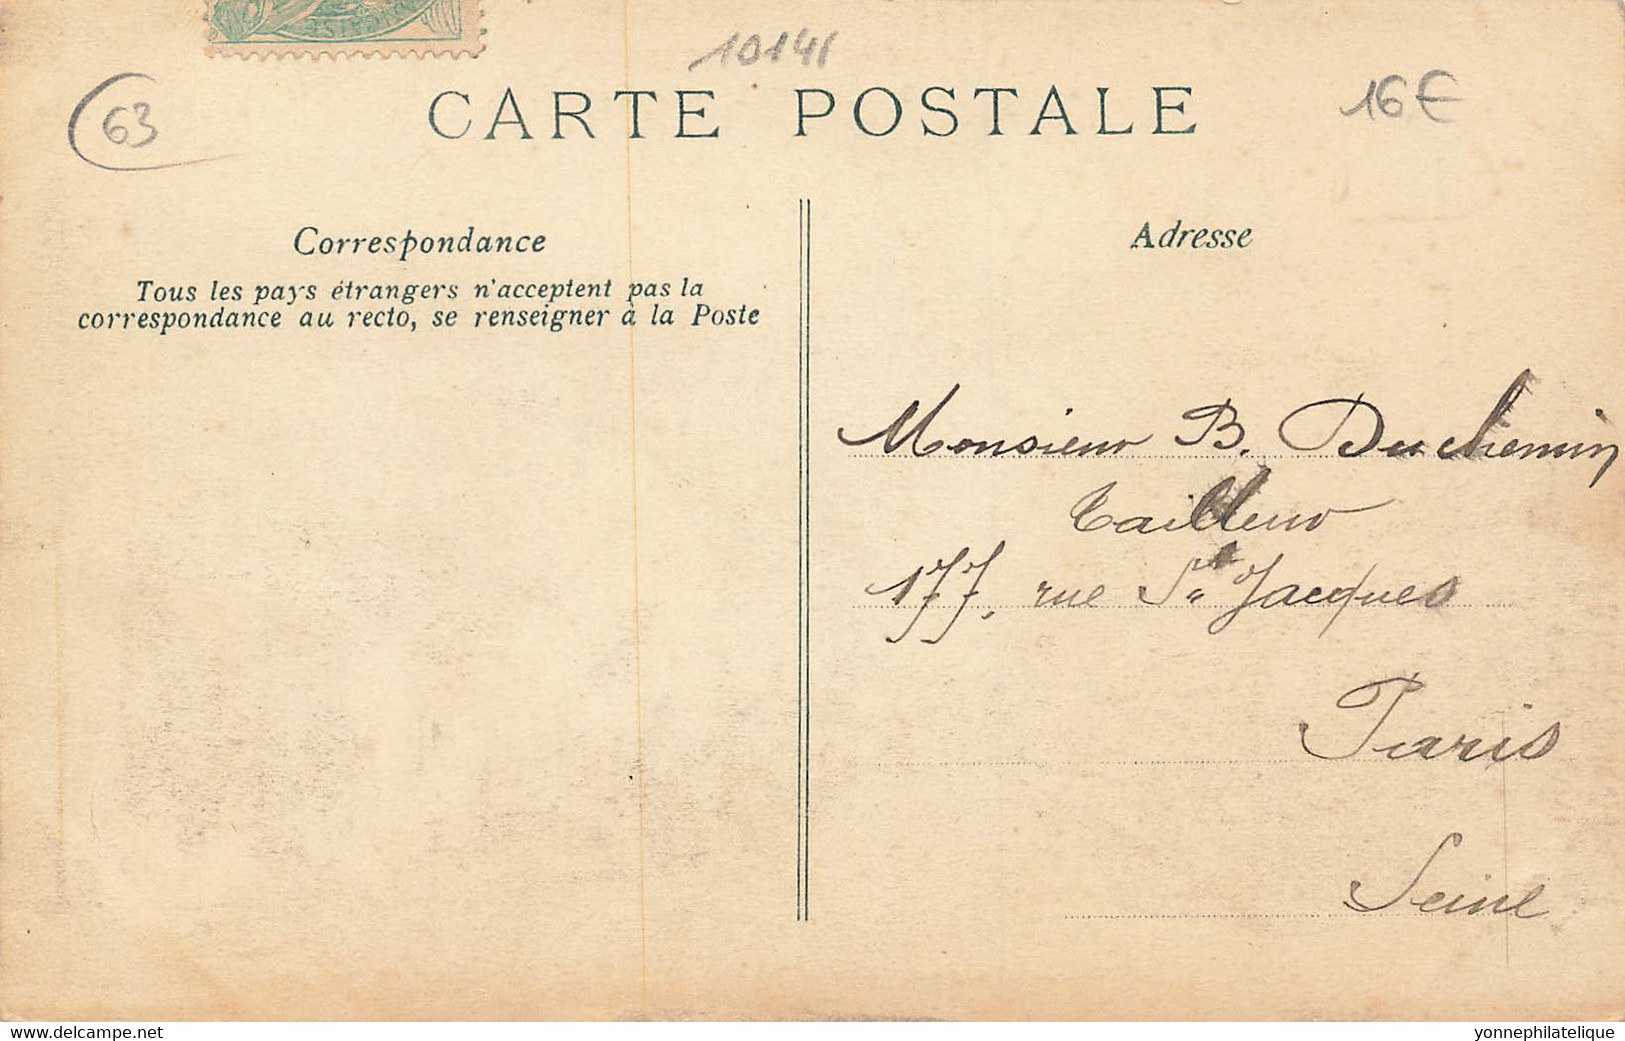 10141
63
CARTE POSTALE
16€
Correspondance
Tous les pays étrangers n'acceptent pas la
correspondance au recto, se renseigner à la Poste
Adresse
Monsieur B. Duchemin
Tailleur
177, rue St Jacques
Paris
Seine
delcampe.net
yonnephilatelique